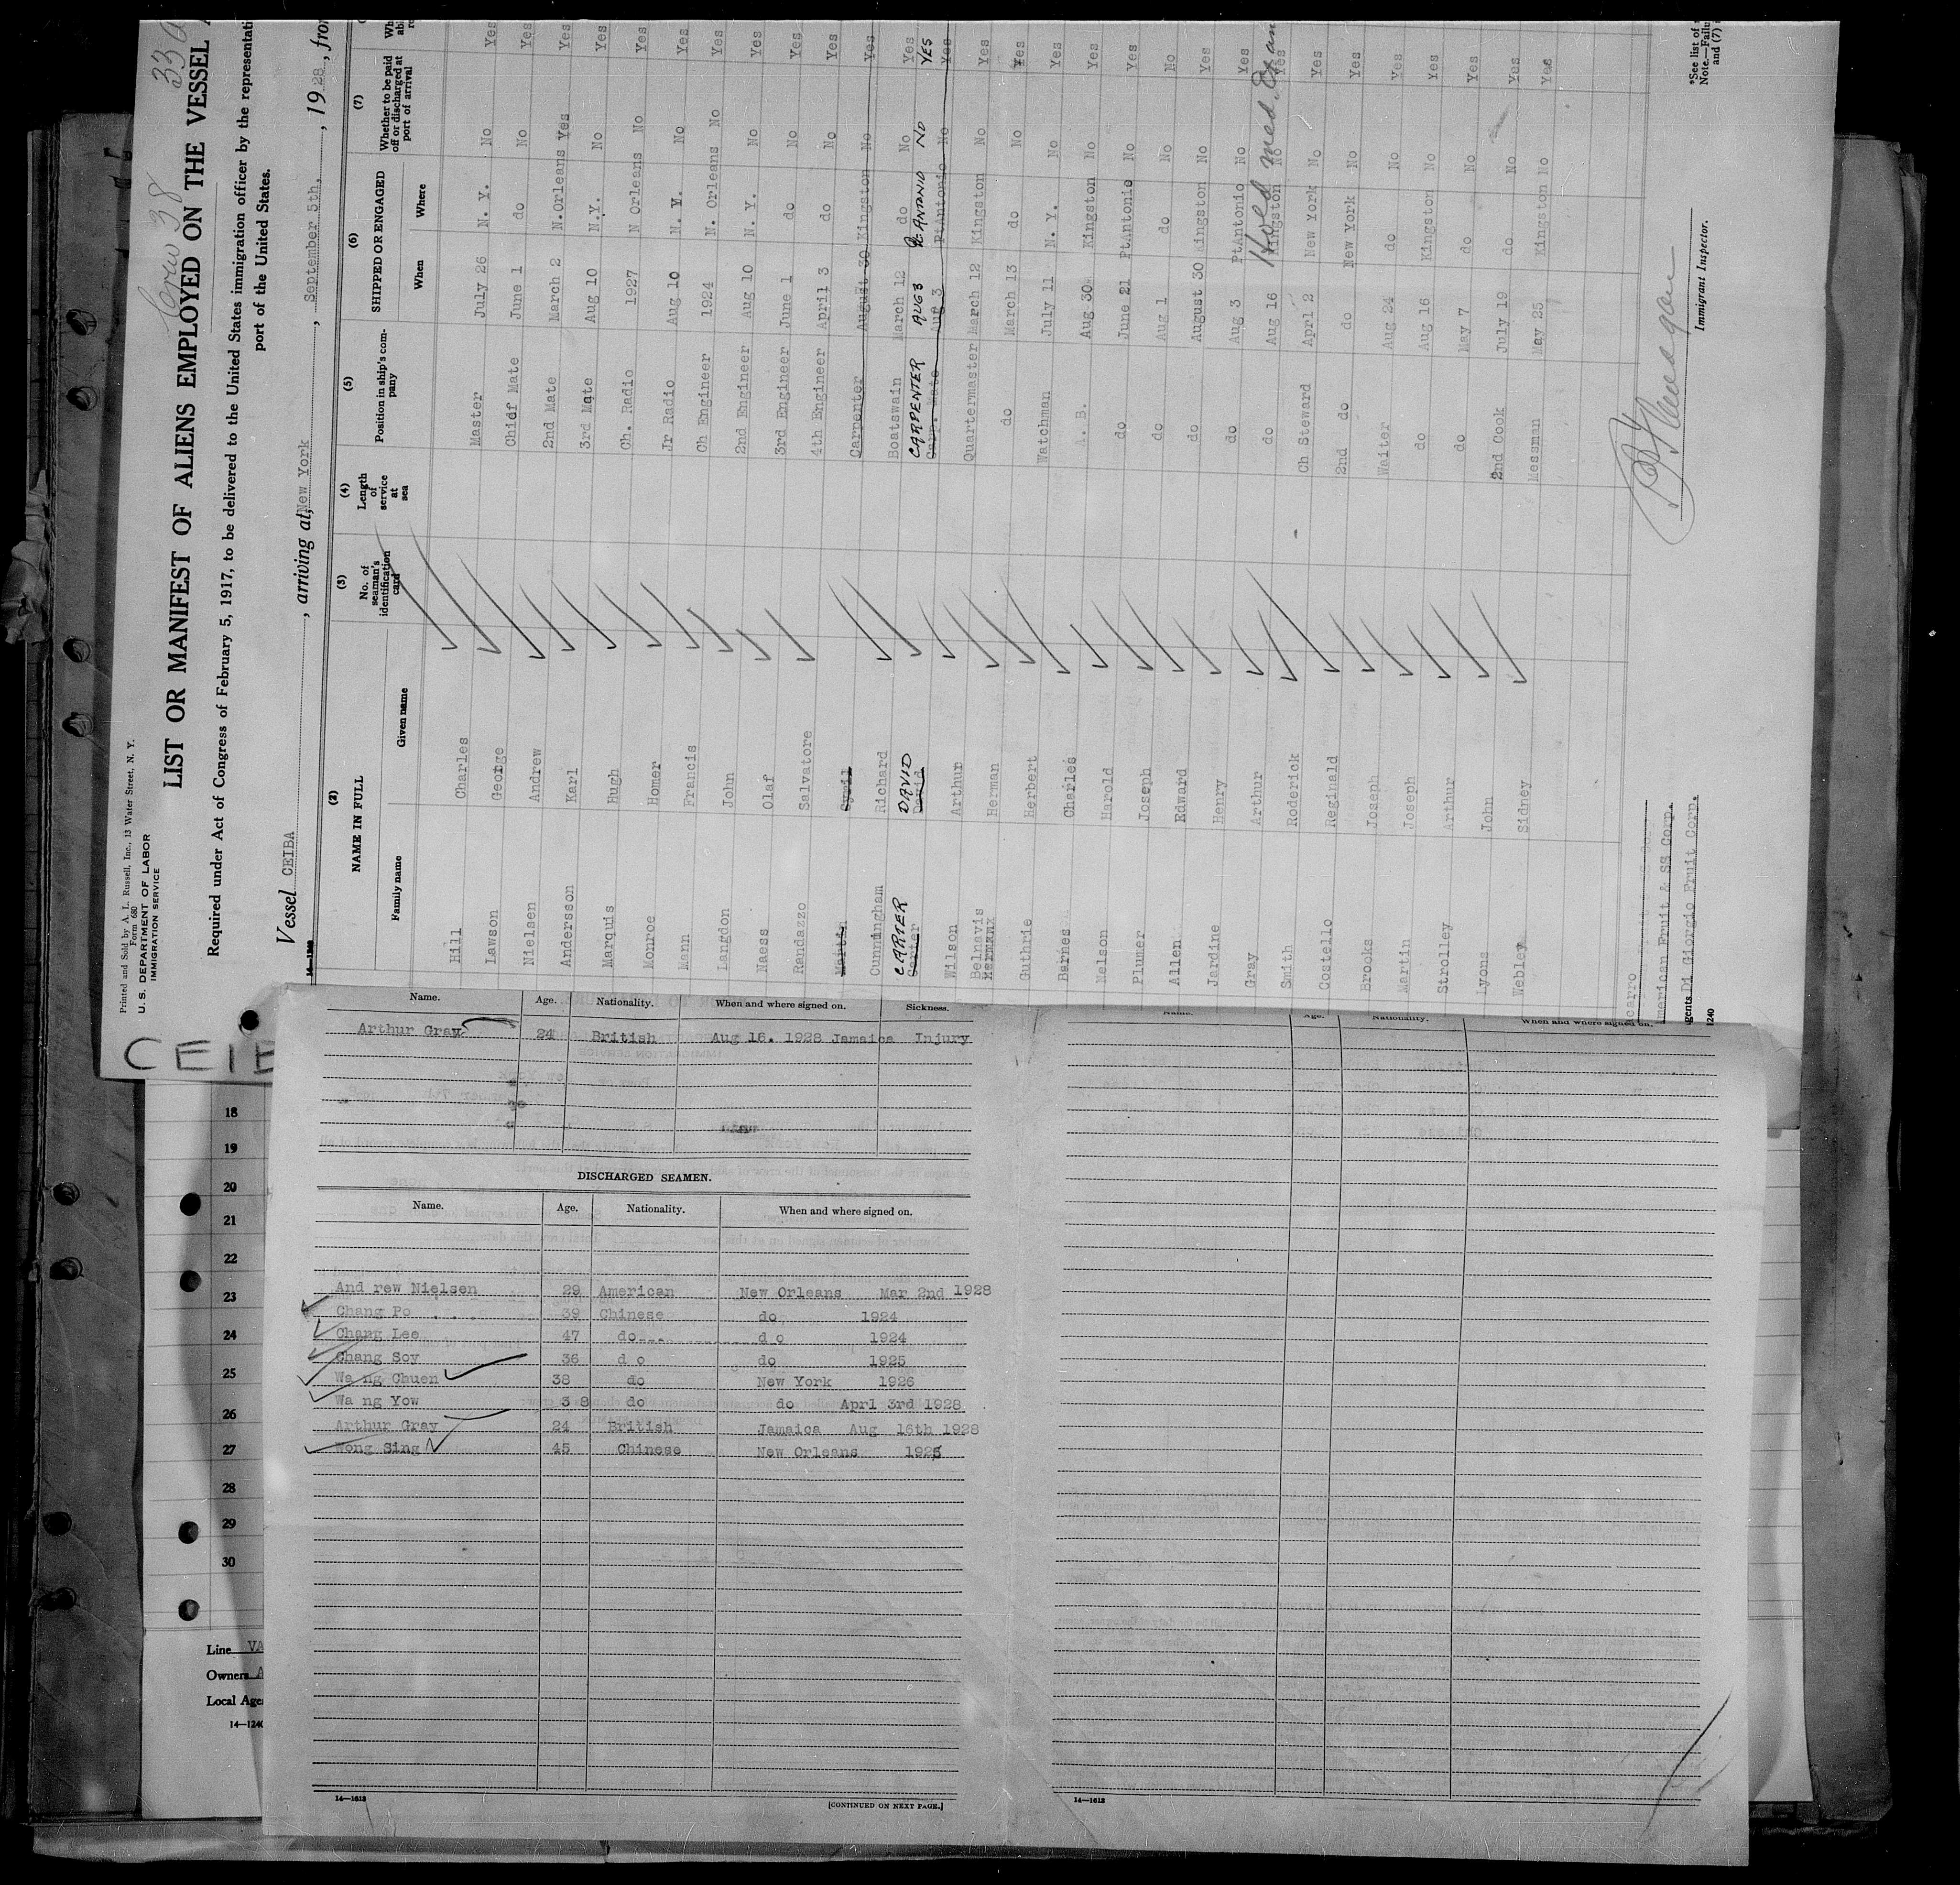 Crew 38
330
Printed and Sold by A. L. Russell, Inc., 13 Water Street, N. Y.
Form 680
U. S. DEPARTMENT OF LABOR
IMMIGRATION SERVICE
LIST OR MANIFEST OF ALIENS EMPLOYED ON THE VESSEL
Required under Act of Congress of February 5, 1917, to be delivered to the United States immigration officer by the representati
port of the United States.
Vessel CEIBA, arriving at New York, September 5th, 1928, from
14—1240
(2) (3) (4) (5) (6) (7)
NAME IN FULL No. of seaman's identification card Length of service at sea Position in ship's company SHIPPED OR ENGAGED Whether to be paid off or discharged at port of arrival
Family name Given name When Where
Hill Charles Master July 26 N. Y. No Yes
Lawson George Chidf Mate June 1 do No Yes
Nielsen Andrew 2nd Mate March 2 N.Orleans Yes Yes
Andersson Karl 3rd Mate Aug 10 N.Y. No Yes
Marquis Hugh Ch. Radio 1927 N Orleans No Yes
Monroe Homer Jr Radio Aug 10 N. Y. No Yes
Mann Francis Ch Engineer 1924 N. Orleans No Yes
Langdon John 2nd Engineer Aug 10 N. Y. No Yes
Naess Olaf 3rd Engineer June 1 do No Yes
Randazzo Salvatore 4th Engineer April 3 do No Yes
Martin Cyril Carpenter August 30 Kingston No Yes
Cunningham Richard Boatswain March 12 do No Yes
CARTER DAVID CARPENTER AUG 3 Pt ANTONIO NO YES
Carter David Carp. Mate Aug 3 PtAntonio No Yes
Wilson Arthur Quartermaster March 12 Kingston No Yes
Belnavis Herman do March 13 do No Yes
Guthrie Herbert Watchman July 11 N. Y. No Yes
Barnes Charles A. B. Aug 30 Kingston No Yes
Nelson Harold do June 21 PtAntonio No Yes
Plumer Joseph do Aug 1 do No No
Allen Edward do August 30 Kingston No Yes
Jardine Henry do Aug 3 PtAntonio No Yes
Gray Arthur do Aug 16 Kingston No Yes
Smith Roderick Ch Steward Aprl 2 New York No Yes
Costello Reginald 2nd do do New York No Yes
Brooks Joseph Waiter Aug 24 do No Yes
Martin Joseph do Aug 16 Kingston No Yes
Strolley Arthur do May 7 do No Yes
Lyons John 2nd Cook July 19 do No Yes
Webley Sidney Messman May 25 Kingston No Yes
Immigrant Inspector.
*See list of
Note.—Failu
and (7)
ccarro
merican Fruit & SS Corp.
gents Di Giorgio Fruit Corp.
1240
CEIB
Name. Age. Nationality. When and where signed on. Sickness.
Arthur Gray 24 British Aug 16. 1928 Jamaica Injury
DISCHARGED SEAMEN.
Name. Age. Nationality. When and where signed on.
And rew Nielsen 29 American New Orleans Mar 2nd 1928
Chang Po 39 Chinese do 1924
Chang Lee 47 do d o 1924
Chang Soy 36 d o do 1925
Wa ng Chuen 38 do New York 1926
Wa ng Yow 3 8 do do Aprl 3rd 1928
Arthur Gray 24 British Jamaica Aug 16th 1928
Wong Sing 45 Chinese New Orleans 1925
14—1618
[CONTINUED ON NEXT PAGE.]
Name. Age. Nationality. When and where signed on.
14—1618
18
19
20
21
22
23
24
25
26
27
28
29
30
Line VA
Owners A
Local Age
14—1240